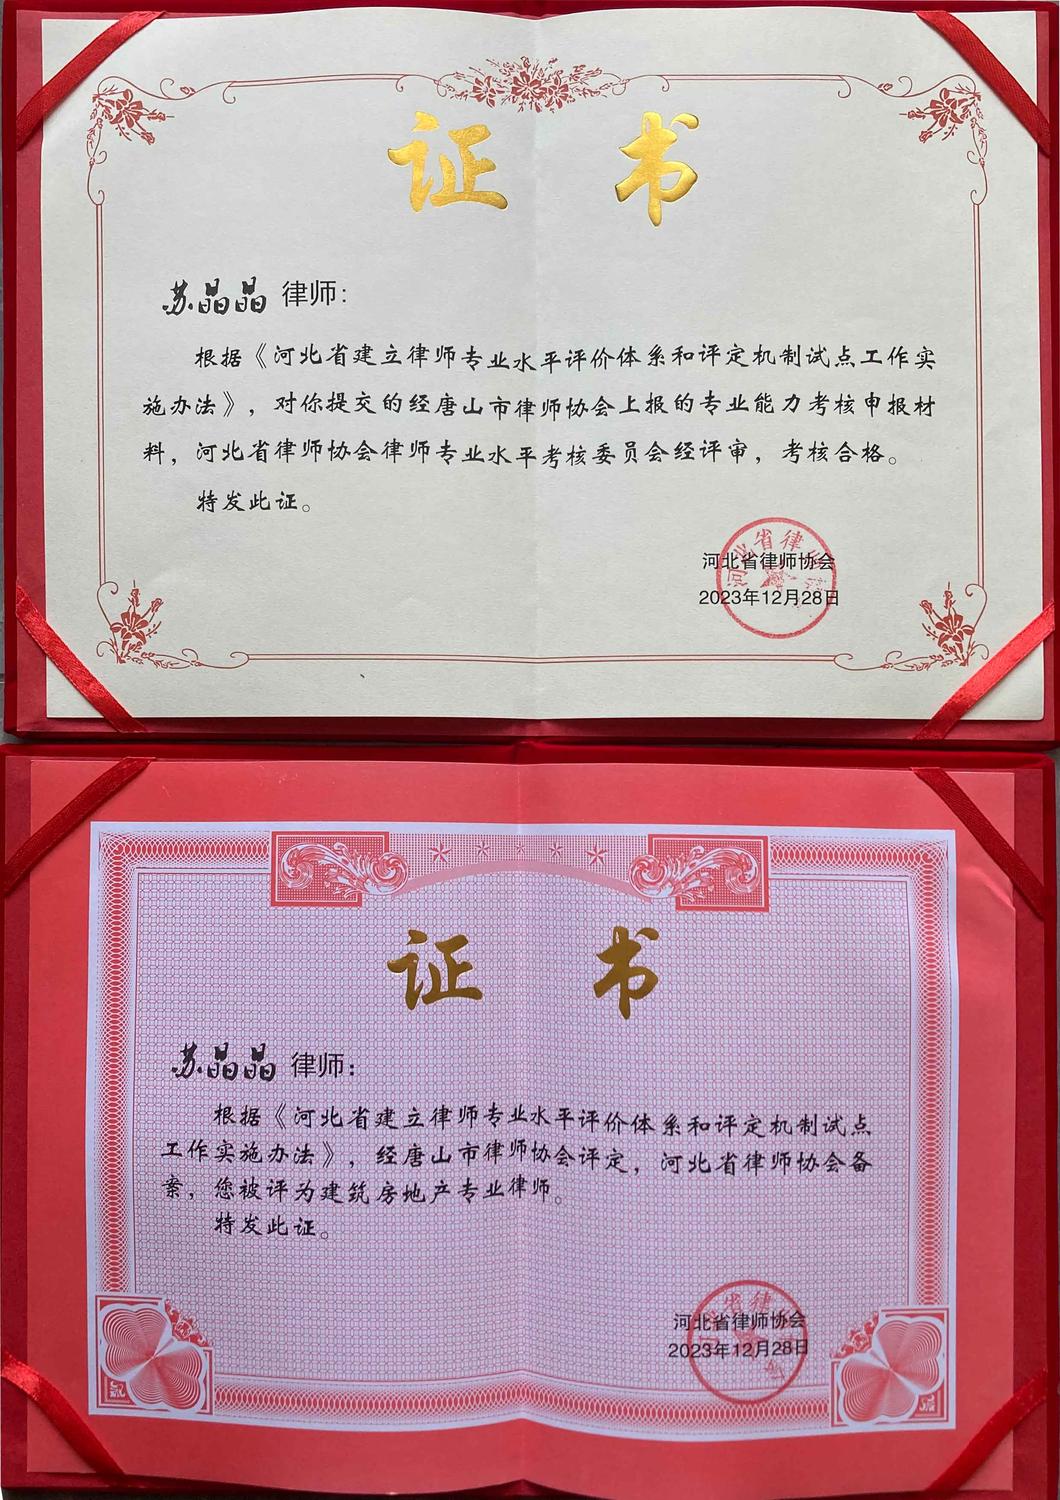 证 书
苏晶晶 律师：
根据《河北省建立律师专业水平评价体系和评定机制试点工作实
施办法》，对你提交的经唐山市律师协会上报的专业能力考核申报材
料，河北省律师协会律师专业水平考核委员会经评审，考核合格。
特发此证。
河北省律师协会
2023年12月28日
证 书
苏晶晶 律师：
根据《河北省建立律师专业水平评价体系和评定机制试点
工作实施办法》，经唐山市律师协会评定，河北省律师协会备
案，您被评为建筑房地产专业律师。
特发此证。
河北省律师协会
2023年12月28日